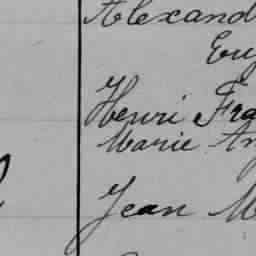 Alexand
Eug
Henri Fra
Marie An
Jean M